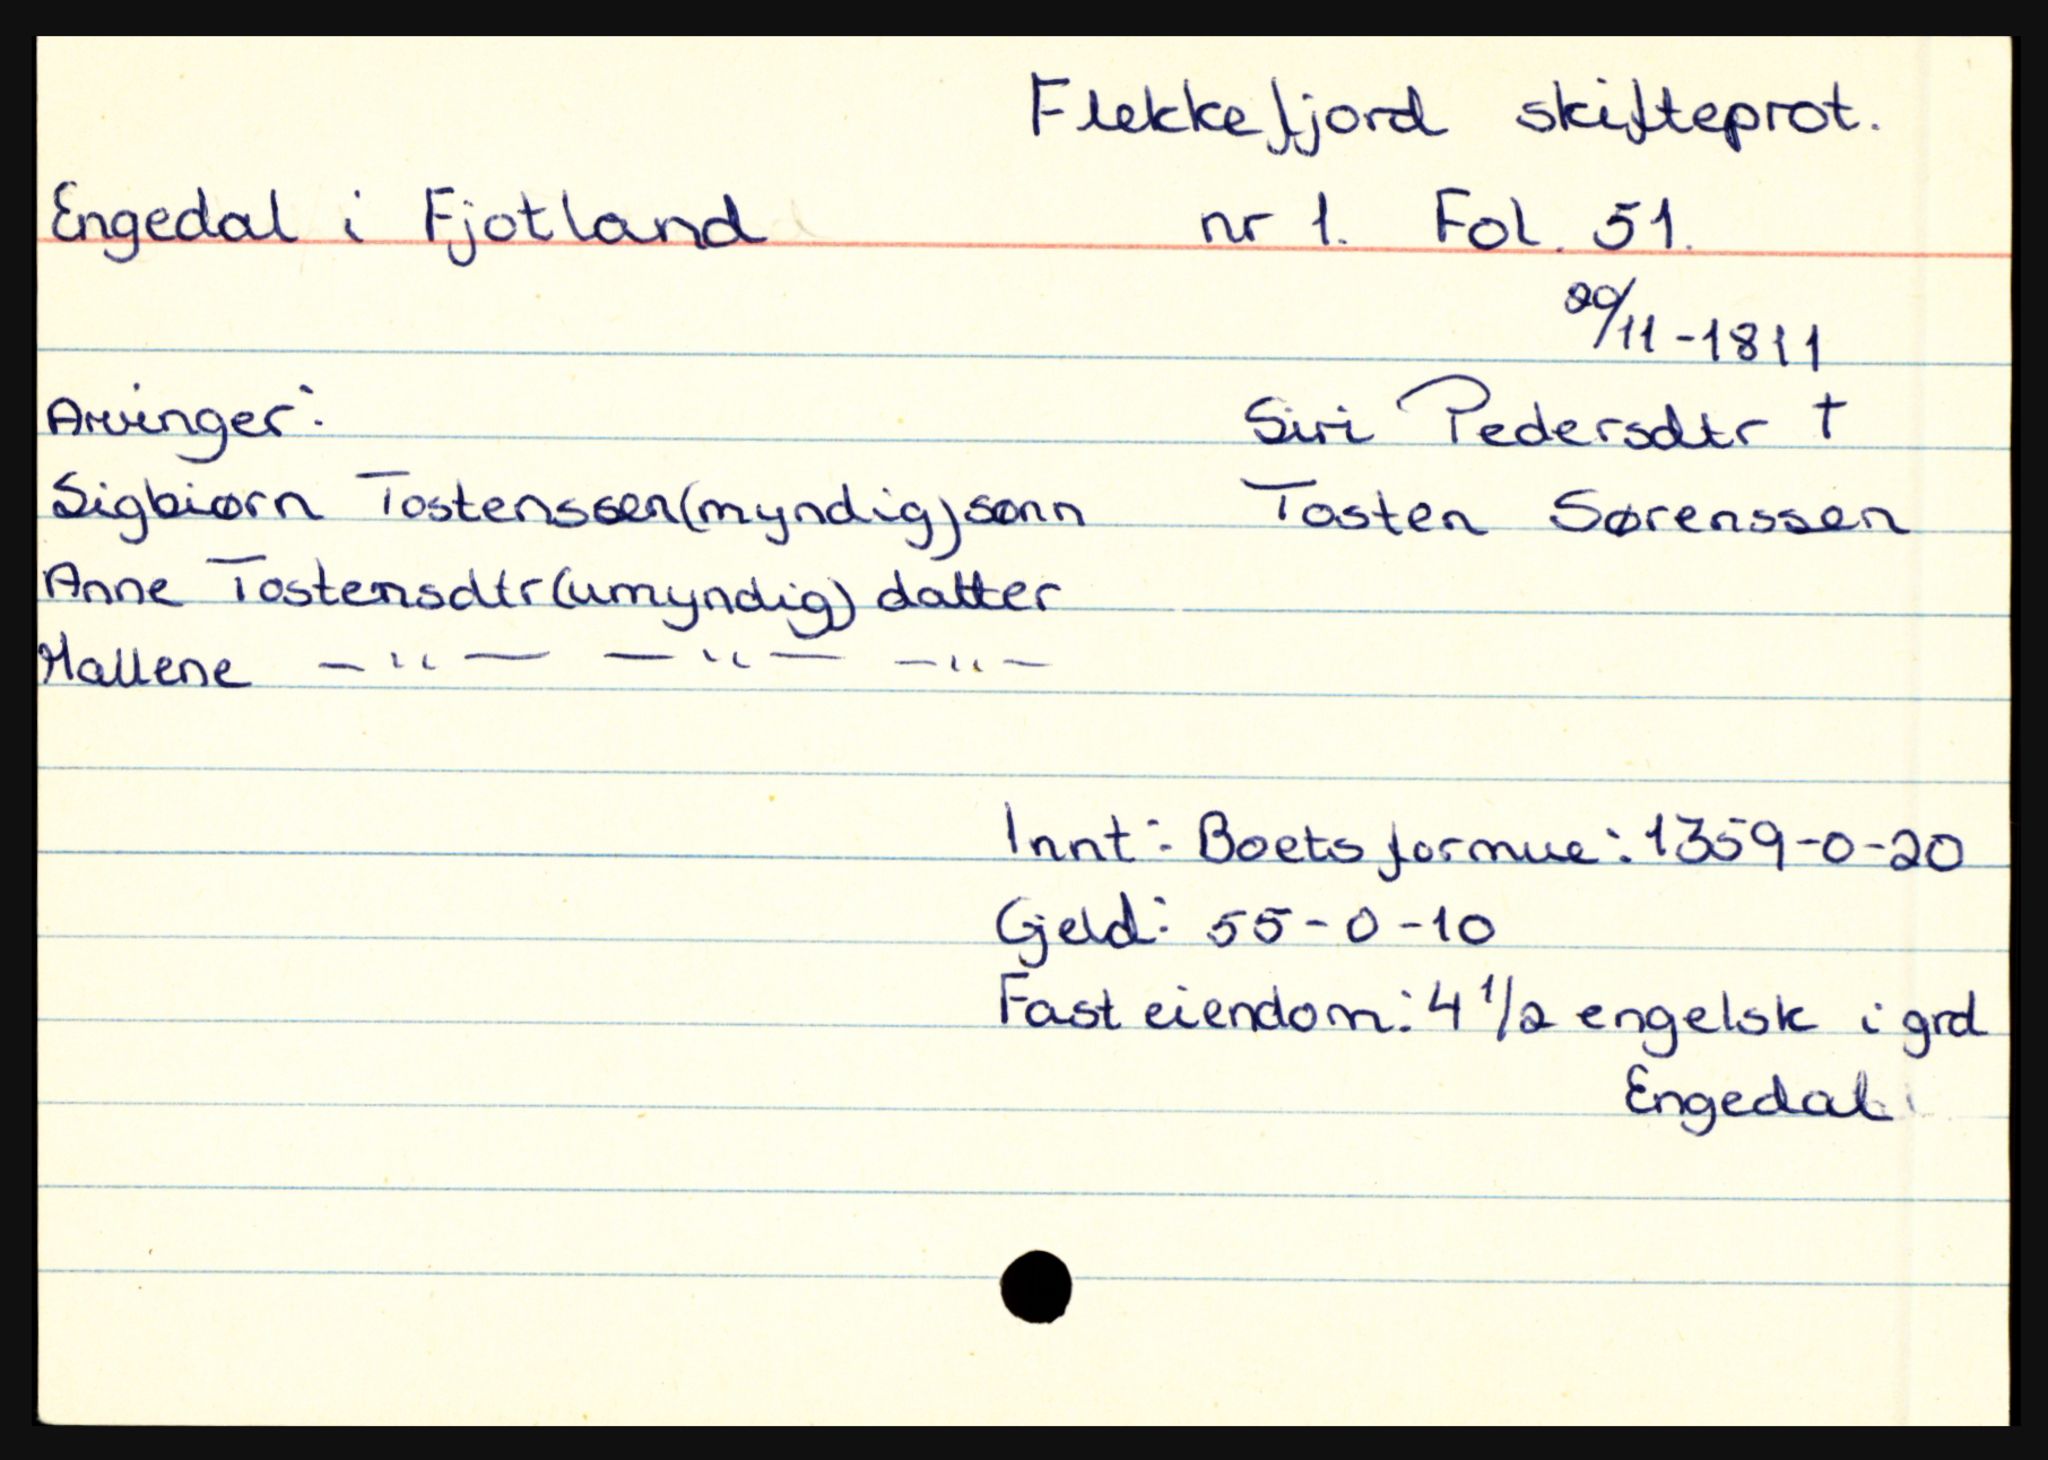 Flekkefjord skifteprot.
Engedal i Fjotland nr 1. Fol. 51.
20/11-1811
Arvinger: Siri Pedersdtr †
Sigbiørn Tostenssen(myndig)sønn Tosten Sørenssen
Anne Tostensdtr(umyndig) datter
Mallene —"— —"— —"—
Innt: Boets formue: 1359-0-20
Gjeld: 55-0-10
Fast eiendom: 4 1/2 engelsk i grd
Engedal